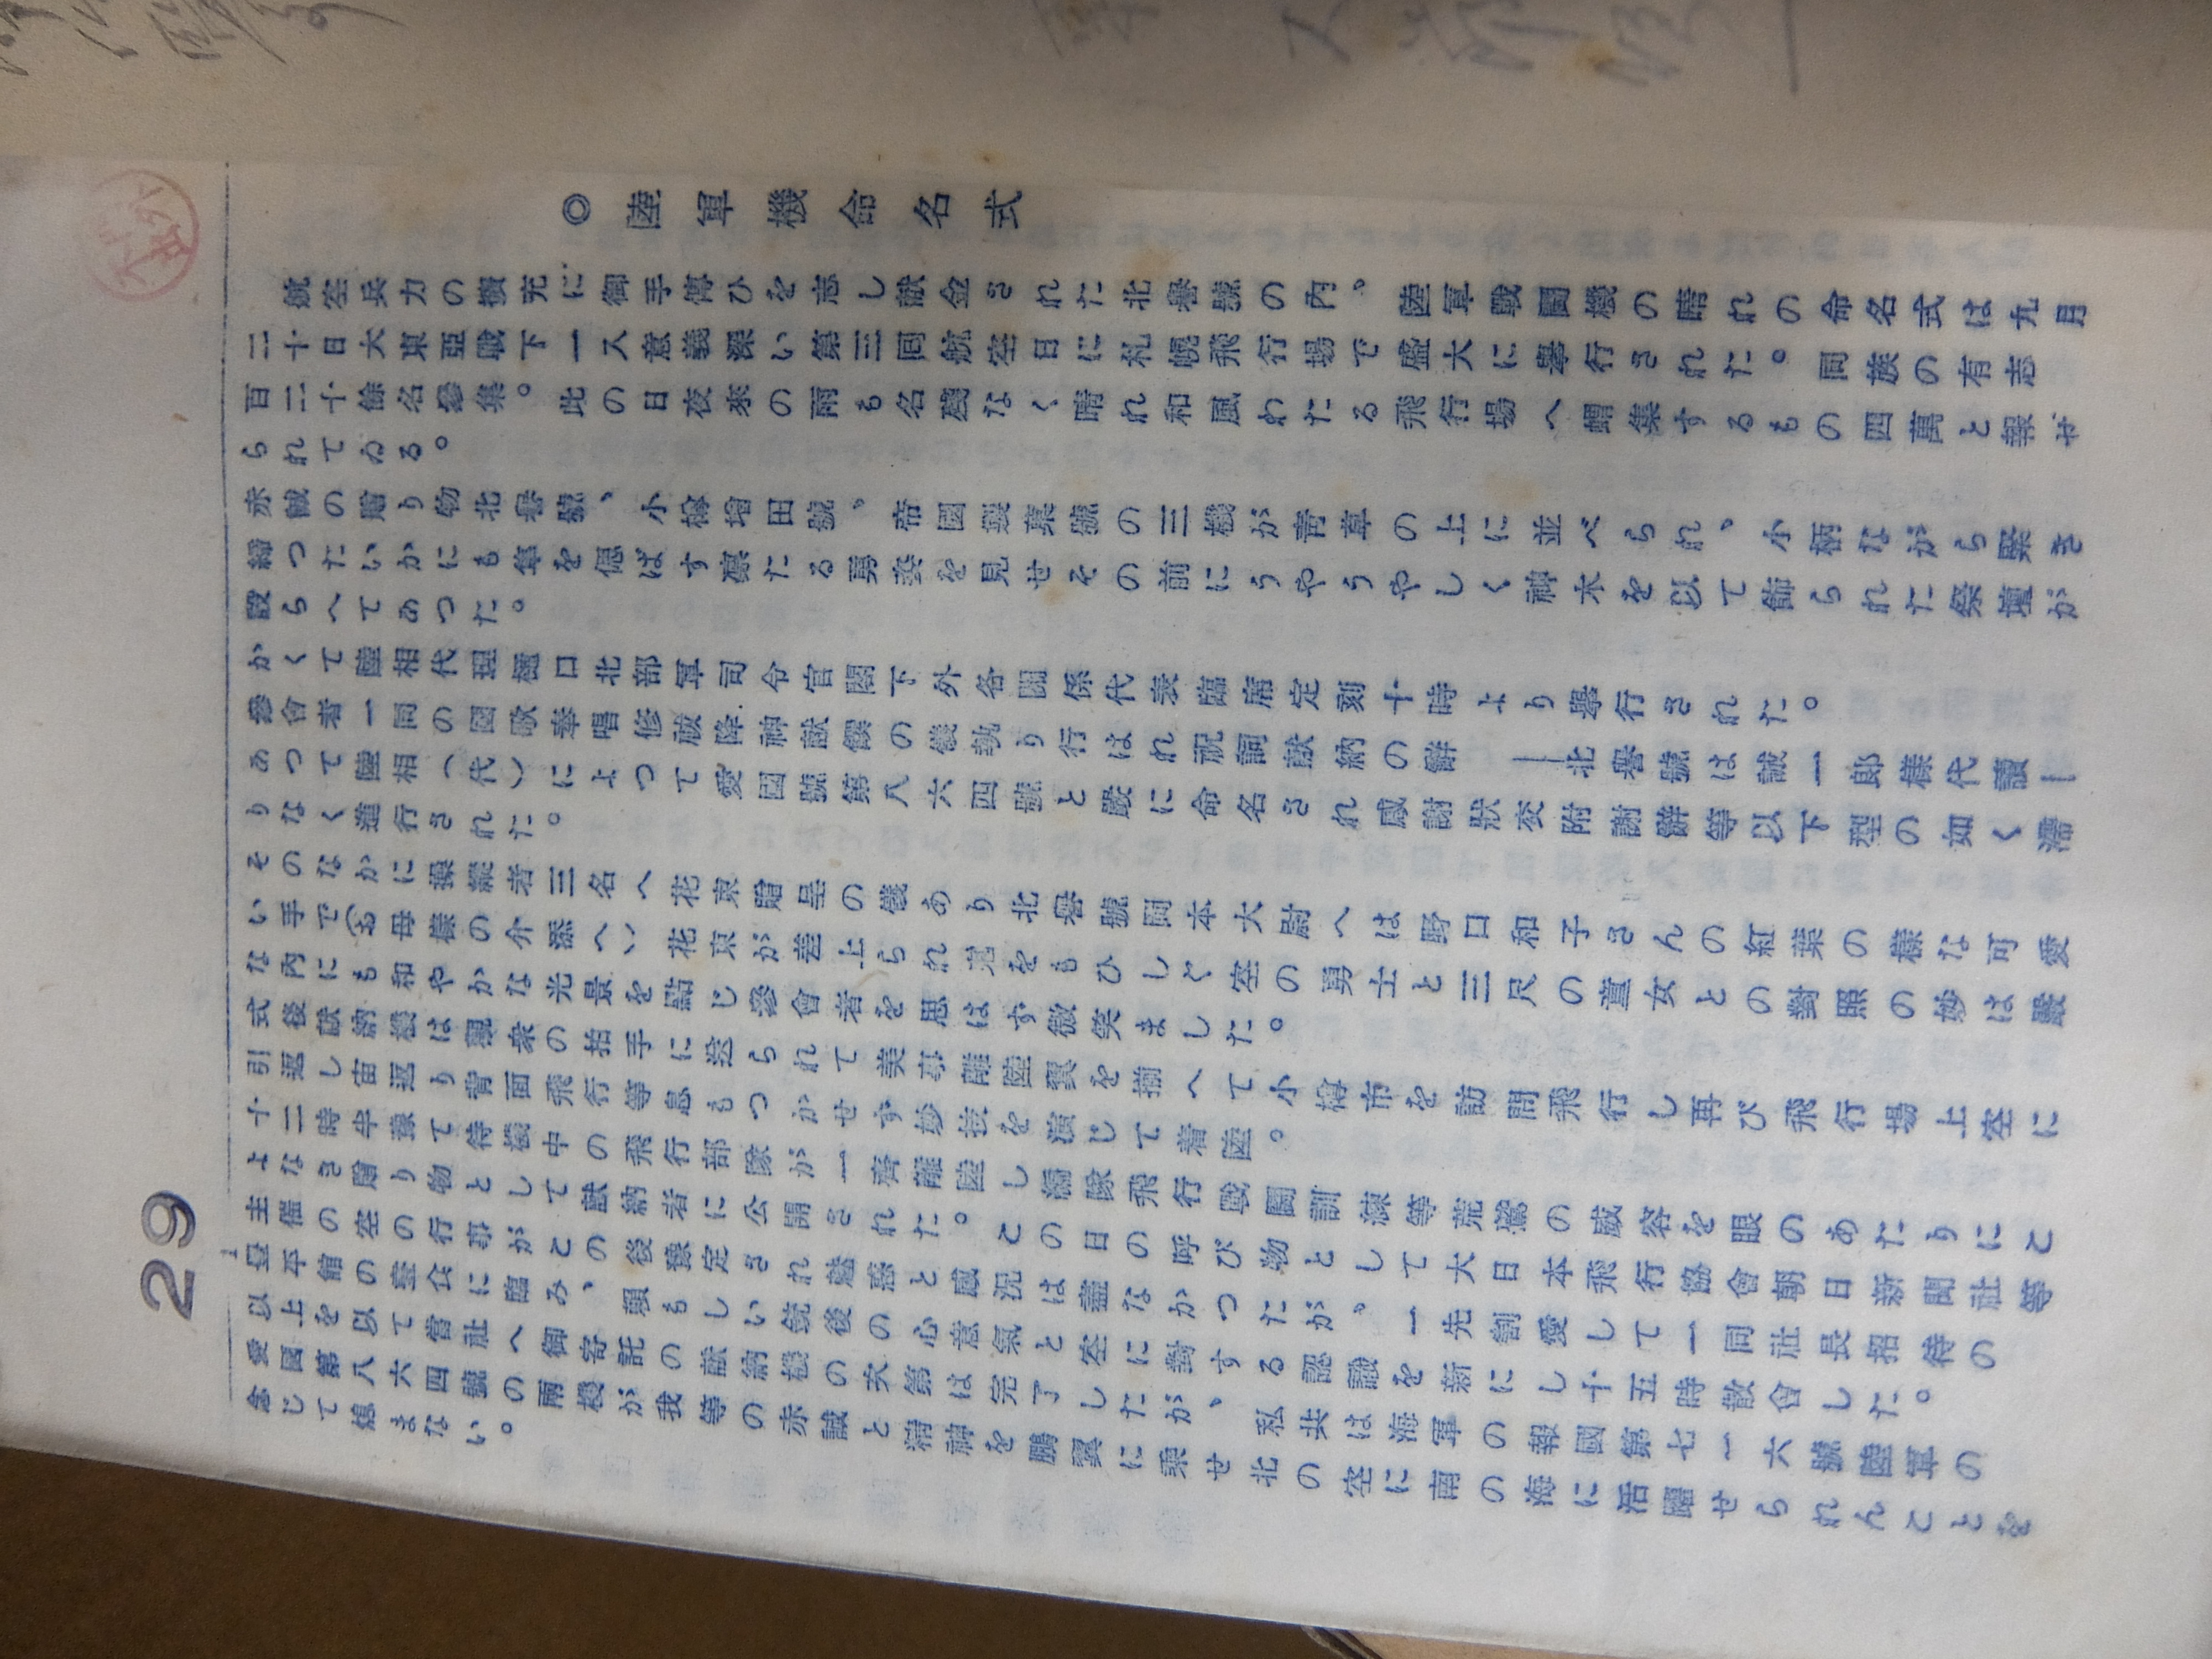 29
◎陸軍機命名式
航空兵力の擴充に御手傳ひを志し献金された北譽號の内、陸軍戰鬪機の晴れの命名式は九月
二十日大東亞戰下一入意義深い第三回航空日に札幌飛行場で盛大に擧行された。同族の有志
百二十餘名參集。此の日夜來の雨も名殘なく晴れ和風わたる飛行場へ蝟集するもの四萬と報ぜ
られてゐる。
赤誠の贈り物北譽號、小樽增田號、帝國製菓號の三機が靑草の上に並べられ、小柄ながら緊き
締つたいかにも隼を偲ばす凛たる勇姿を見せその前にうやうやしく神木を以て飾られた祭壇が
設らへてあつた。
かくて陸相代理樋口北部軍司令官閣下外各關係代表臨席定刻十時より擧行された。
參會者一同の國歌奉唱修祓降神献饌の儀執り行はれ祝詞献納の辭 ―北譽號は誠一郎樣代讀―
あつて陸相(代)によつて愛國號第八六四號と嚴に命名され感謝狀交附謝辭等以下型の如く滯
りなく進行された。
そのなかに操縱者三名へ花束贈呈の儀あり北譽號岡本大尉へは野口和子さんの紅葉の樣な可愛
い手で(お母樣の介添へ)花束が差上られ鬼をもひしぐ空の勇士と三尺の童女との對照の妙は嚴
な内にも和やかな光景を點じ參會者を思はず微笑ました。
式後献納機は觀衆の拍手に送られて美事離陸翼を揃へて小樽市を訪問飛行し再び飛行場上空に
引返し宙返り背面飛行等息もつかせず妙技を演じて着陸。
十二時半豫て待機中の飛行部隊が一齊離陸し編隊飛行戰鬪訓練等荒鷲の威容を眼のあたりにこ
よなき贈り物として献納者に公開された。この日の呼び物として大日本飛行協會朝日新聞社等
主催の空の行事がこの後豫定され魅惑と感況は盡なかつたが、一先割愛して一同社長招待の
平館の会に臨み、頼もしい銃後の心意氣と空に對する認識を新にし十五時散會した。
以上を以て當社へ御寄託の献納機の次第は完了したが、私共は海軍の報國第七一六號陸軍の
愛國第八六四號の兩機が我等の赤誠と精神を鵬翼に乘せ北の空に南の海に活躍せられんことを
念じて熄まない。